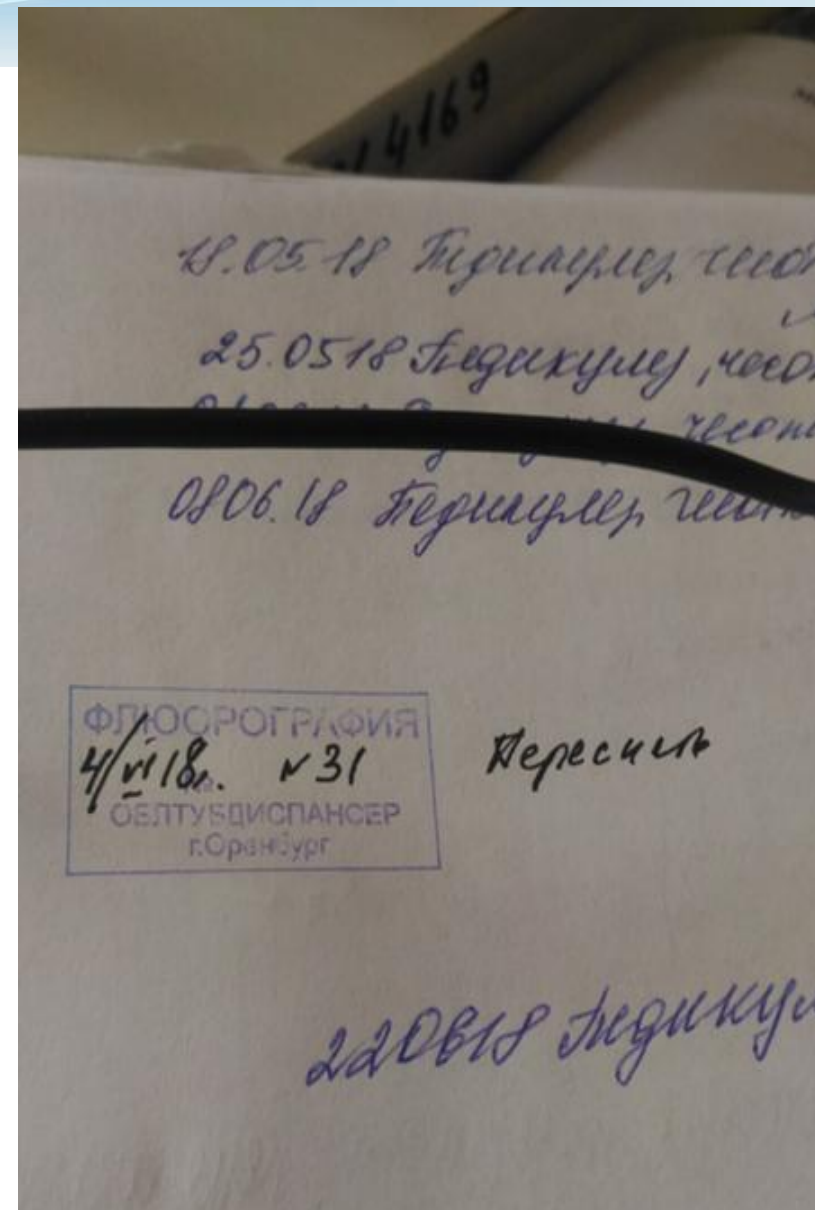 4169
18.05.18 Педикулез, чесот
25.05.18 Педикулез, чесот
чесот
08.06.18 Педикулез, чесот
ФЛЮОРОГРАФИЯ
4/VI 18г. № 31
ОБЛТУБДИСПАНСЕР
г.Оренбург
Переснять
220618 Педикул